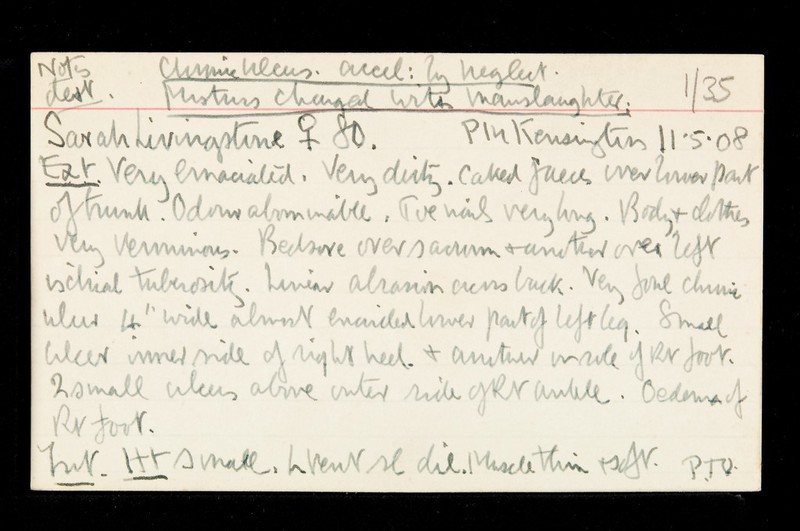 Notes Chronic Ulcers. accel: by neglect. 1/35
dest. Mistress charged with manslaughter.
Sarah Livingstone ♀ 80. PM Kensington 11.5.08
Ext. Very emaciated. Very dirty. Caked faeces over lower part
of trunk. Odour abominable. Toenails very long. Body + clothes
very verminous. Bedsore over sacrum + another over left
ischial tuberosity. Linear abrasion across back. Very foul chronic
ulcer 4" wide almost encircled lower part of left leg. Small
ulcer inner side of right heel. + another on sole of Rt foot.
2 small ulcers above outer side of Rt ankle. Oedema of
Rt foot.
Int. Ht small. L Vent sl dil. Muscle thin + soft. P.T.O.